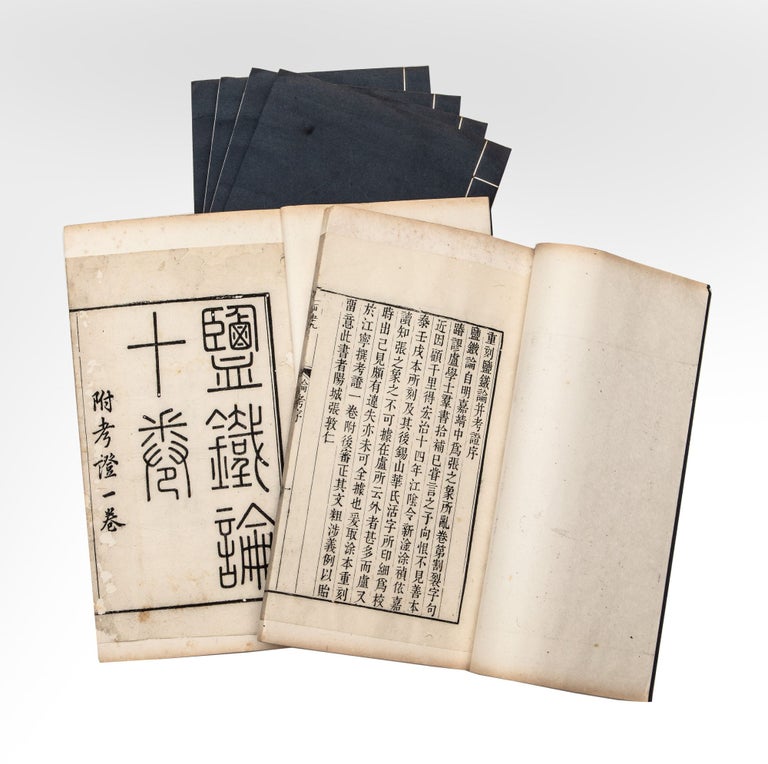 鹽鐵論
十卷
附考證一卷
重刻鹽鐵論并考證序
鹽鐵論自明嘉靖中爲張之象所亂卷第割裂字句
踳謬盧學士羣書拾補已甞言之予向恨不見善本
近因顧千里得宏治十四年江陰令新淦涂禎依嘉
泰壬戌本所刻及其後錫山華氏活字所印細爲校
讀知張之象之不可據在盧所云外者甚多而盧又
時出己見頗有違失亦未可全據也爰取涂本重刻
於江寧撰考證一卷附後審正其文粗涉義例以貽
留意此書者陽城張敦仁
論考序